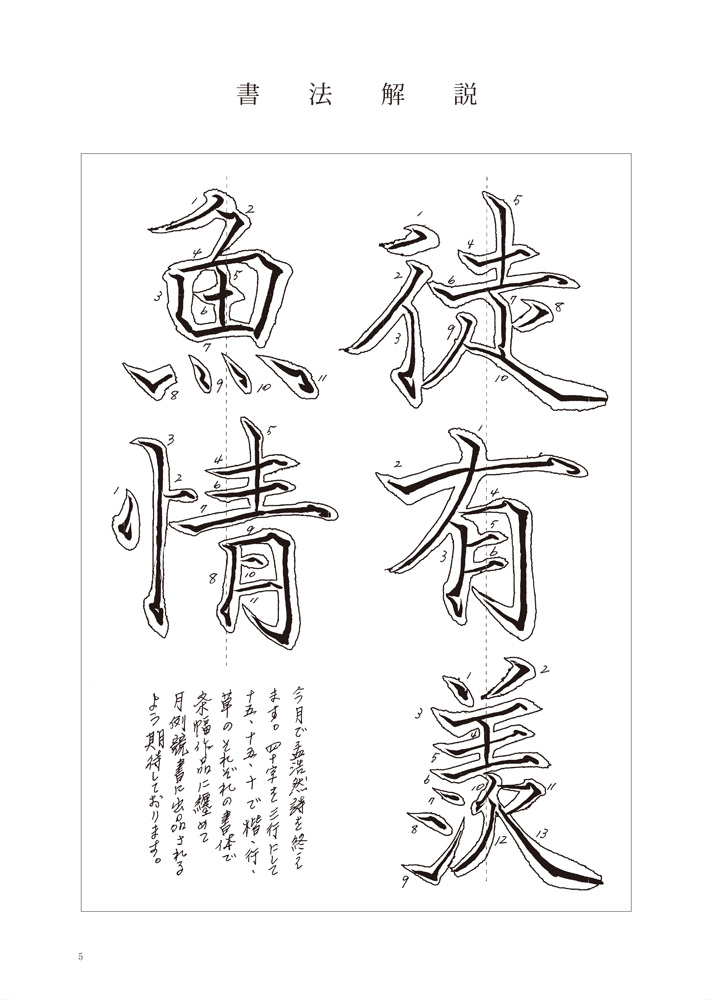 書法解説
徒有羨
魚情
今月で孟浩然詩を終え
ます。四十字を三行にして
十五、十五、十で楷、行、
草のそれぞれの書体で
条幅作品に纏めて
月例競書に出品される
よう期待しております。
5